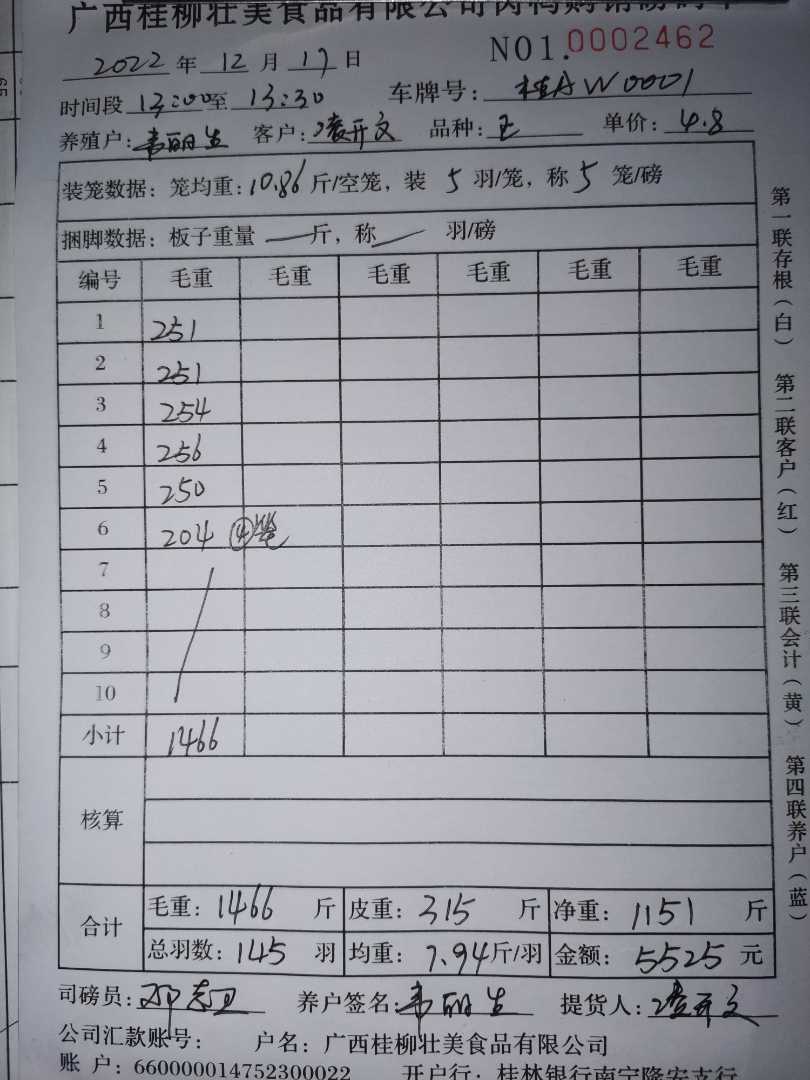 广西桂柳壮美食品有限公司肉鸭购销磅码单
NO1.0002462
2022 年 12 月 17 日
时间段 13:00 至 13:30 车牌号: 桂AW0001
养殖户: 韦丽生 客户: 凌开文 品种: 王 单价: 4.8
装笼数据: 笼均重: 10.86 斤/空笼, 装 5 羽/笼, 称 5 笼/磅
捆脚数据: 板子重量 — 斤, 称 — 羽/磅
编号 毛重 毛重 毛重 毛重 毛重 毛重
1 251
2 251
3 254
4 256
5 250
6 204 ④笼
7
8
9
10
小计 1466
核算
合计 毛重: 1466 斤 皮重: 315 斤 净重: 1151 斤
总羽数: 145 羽 均重: 7.94 斤/羽 金额: 5525 元
司磅员: 邓志卫 养户签名: 韦丽生 提货人: 凌开文
公司汇款账号: 户名: 广西桂柳壮美食品有限公司
账 户: 660000014752300022 开户行: 桂林银行南宁隆安支行
第一联存根(白) 第二联客户(红) 第三联会计(黄) 第四联养户(蓝)